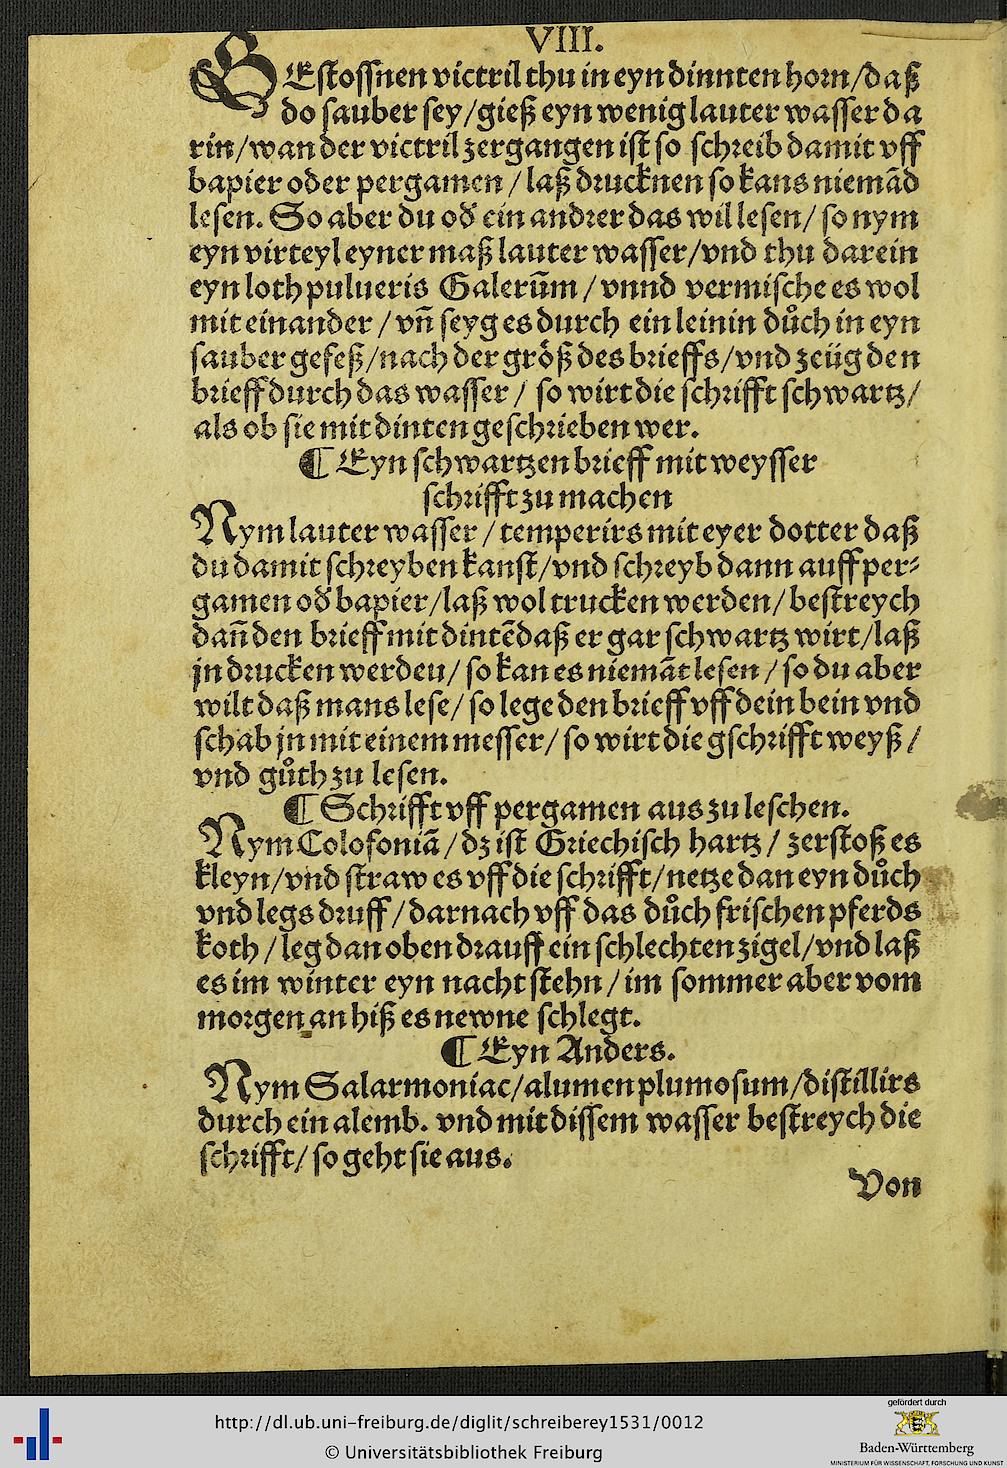 VIII.
GEstossnen victril thu in eyn dinnten horn/daß
do sauber sey/gieß eyn wenig lauter wasser da
rin/wan der victril zergangen ist so schreib damit vff
bapier oder pergamen/laß drucknen so kans niemãd
lesen. So aber du oď ein andrer das wil lesen/so nym
eyn virteyl eyner maß lauter wasser/vnd thu darein
eyn loth pulueris Galerũm/vnnd vermische es wol
mit einander/vñ seyg es durch ein leinin důch in eyn
sauber gefeß/nach der größ des brieffs/vnd zeüg den
brieff durch das wasser/so wirt die schrifft schwartz/
als ob sie mit dinten geschrieben wer.
¶ Eyn schwartzen brieff mit weysser
schrifft zu machen
Nym lauter wasser/temperirs mit eyer dotter daß
du damit schreyben kanst/vnd schreyb dann auff per⸗
gamen oď bapier/laß wol trucken werden/bestreych
dañ den brieff mit dintẽ daß er gar schwartz wirt/laß
jn drucken werden/so kan es niemãt lesen/so du aber
wilt daß mans lese/so lege den brieff vff dein bein vnd
schab jn mit einem messer/so wirt die gschrifft weyß/
vnd gůth zu lesen.
¶ Schrifft vff pergamen aus zu leschen.
Nym Colofoniã/dz ist Griechisch hartz/zerstoß es
kleyn/vnd straw es vff die schrifft/netze dan eyn důch
vnd legs druff/darnach vff das důch frischen pferds
koth/leg dan oben drauff ein schlechten zigel/vnd laß
es im winter eyn nacht stehn/im sommer aber vom
morgen an hiß es newne schlegt.
¶ Eyn Anders.
Nym Salarmoniac/alumen plumosum/distillirs
durch ein alemb. vnd mit dissem wasser bestreych die
schrifft/so geht sie aus.
Von
http://dl.ub.uni-freiburg.de/diglit/schreiberey1531/0012
© Universitätsbibliothek Freiburg
gefördert durch
Baden-Württemberg
MINISTERIUM FÜR WISSENSCHAFT, FORSCHUNG UND KUNST